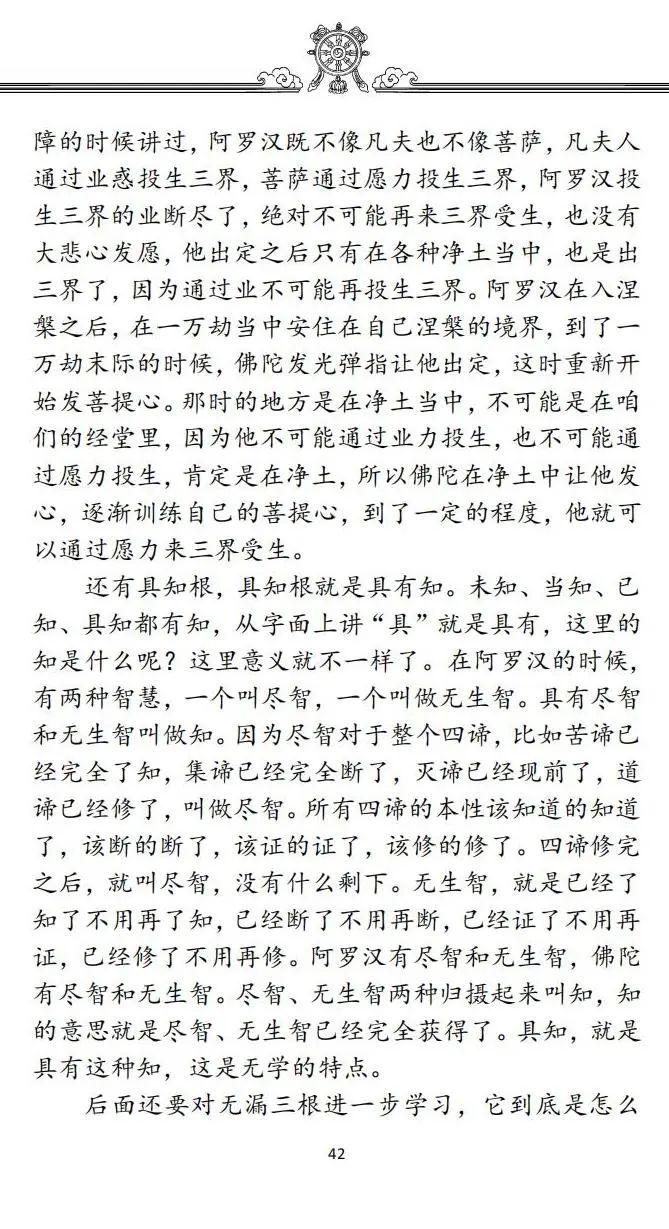 障的时候讲过，阿罗汉既不像凡夫也不像菩萨，凡夫人
通过业惑投生三界，菩萨通过愿力投生三界，阿罗汉投
生三界的业断尽了，绝对不可能再来三界受生，也没有
大悲心发愿，他出定之后只有在各种净土当中，也是出
三界了，因为通过业不可能再投生三界。阿罗汉在入涅
槃之后，在一万劫当中安住在自己涅槃的境界，到了一
万劫末际的时候，佛陀发光弹指让他出定，这时重新开
始发菩提心。那时的地方是在净土当中，不可能是在咱
们的经堂里，因为他不可能通过业力投生，也不可能通
过愿力投生，肯定是在净土，所以佛陀在净土中让他发
心，逐渐训练自己的菩提心，到了一定的程度，他就可
以通过愿力来三界受生。
还有具知根，具知根就是具有知。未知、当知、已
知、具知都有知，从字面上讲“具”就是具有，这里的
知是什么呢？这里意义就不一样了。在阿罗汉的时候，
有两种智慧，一个叫尽智，一个叫做无生智。具有尽智
和无生智叫做知。因为尽智对于整个四谛，比如苦谛已
经完全了知，集谛已经完全断了，灭谛已经现前了，道
谛已经修了，叫做尽智。所有四谛的本性该知道的知道
了，该断的断了，该证的证了，该修的修了。四谛修完
之后，就叫尽智，没有什么剩下。无生智，就是已经了
知了不用再了知，已经断了不用再断，已经证了不用再
证，已经修了不用再修。阿罗汉有尽智和无生智，佛陀
有尽智和无生智。尽智、无生智两种归摄起来叫知，知
的意思就是尽智、无生智已经完全获得了。具知，就是
具有这种知，这是无学的特点。
后面还要对无漏三根进一步学习，它到底是怎么
42